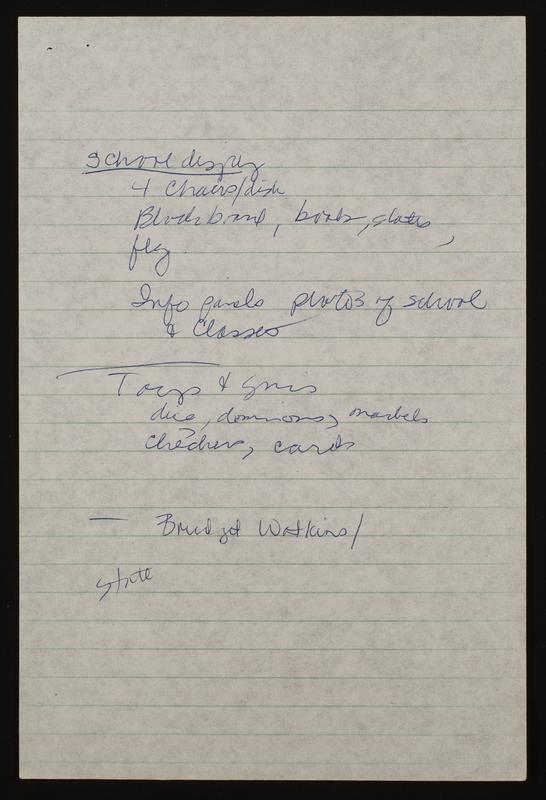 School display
4 Chairs/disk
Blackboard, books, slates,
flag.
Info panels photos of school
& Classes
Toys & games
dice, dominoes, marbels
checkers, cards
— Bridget Watkins/
State